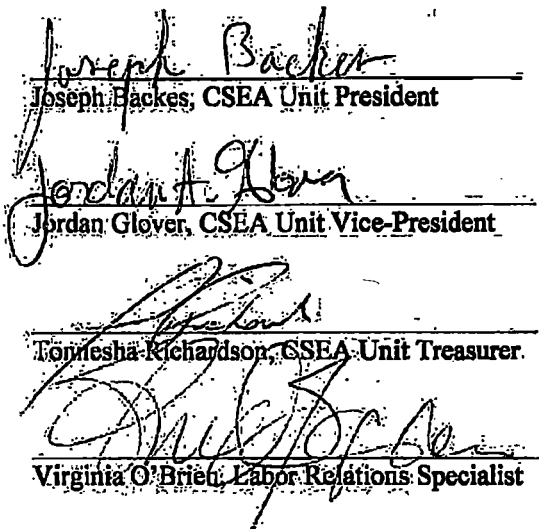 Joseph Backes
Joseph Backes, CSEA Unit President
Jordan A. Glover
Jordan Glover, CSEA Unit Vice-President
Tonnesha Richardson, CSEA Unit Treasurer
Virginia O'Brien, Labor Relations Specialist